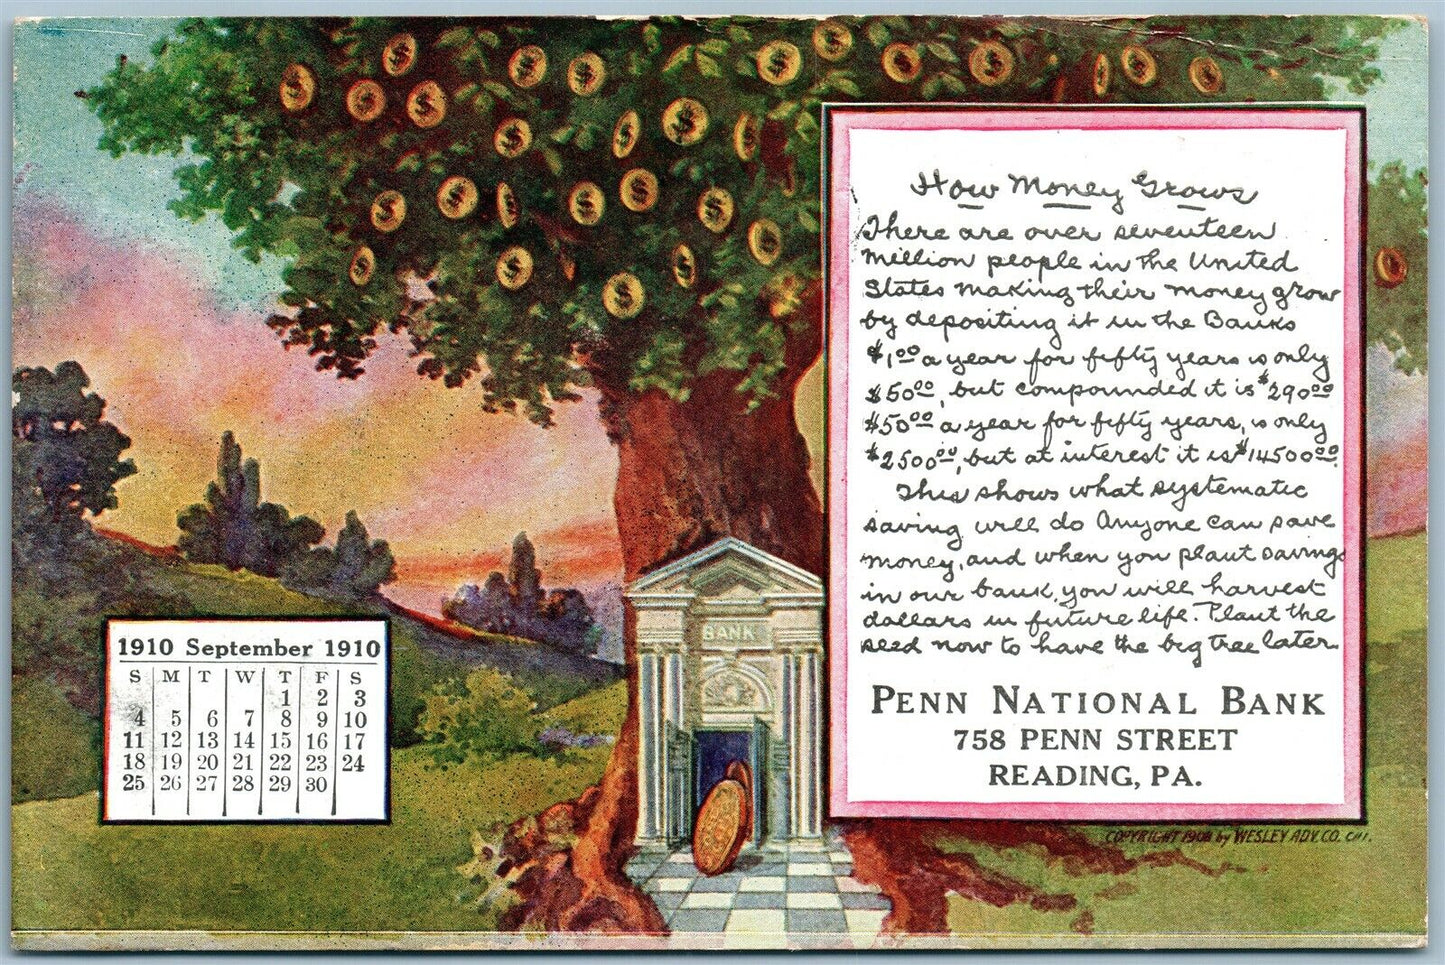 How Money Grows
There are over seventeen
Million people in the United
States making their money grow
by depositing it in the Banks
$1.00 a year for fifty years is only
$50.00, but compounded it is $290.00
$50.00 a year for fifty years, is only
$2500.00, but at interest it is $14500.00.
This shows what systematic
saving will do Anyone can save
money, and when you plant savings
in our bank, you will harvest
dollars in future life. Plant the
seed now to have the big tree later.
PENN NATIONAL BANK
758 PENN STREET
READING, PA.
COPYRIGHT 1908 by WESLEY ADV. CO. CHI.
BANK
1910 September 1910
S M T W T F S
1 2 3
4 5 6 7 8 9 10
11 12 13 14 15 16 17
18 19 20 21 22 23 24
25 26 27 28 29 30